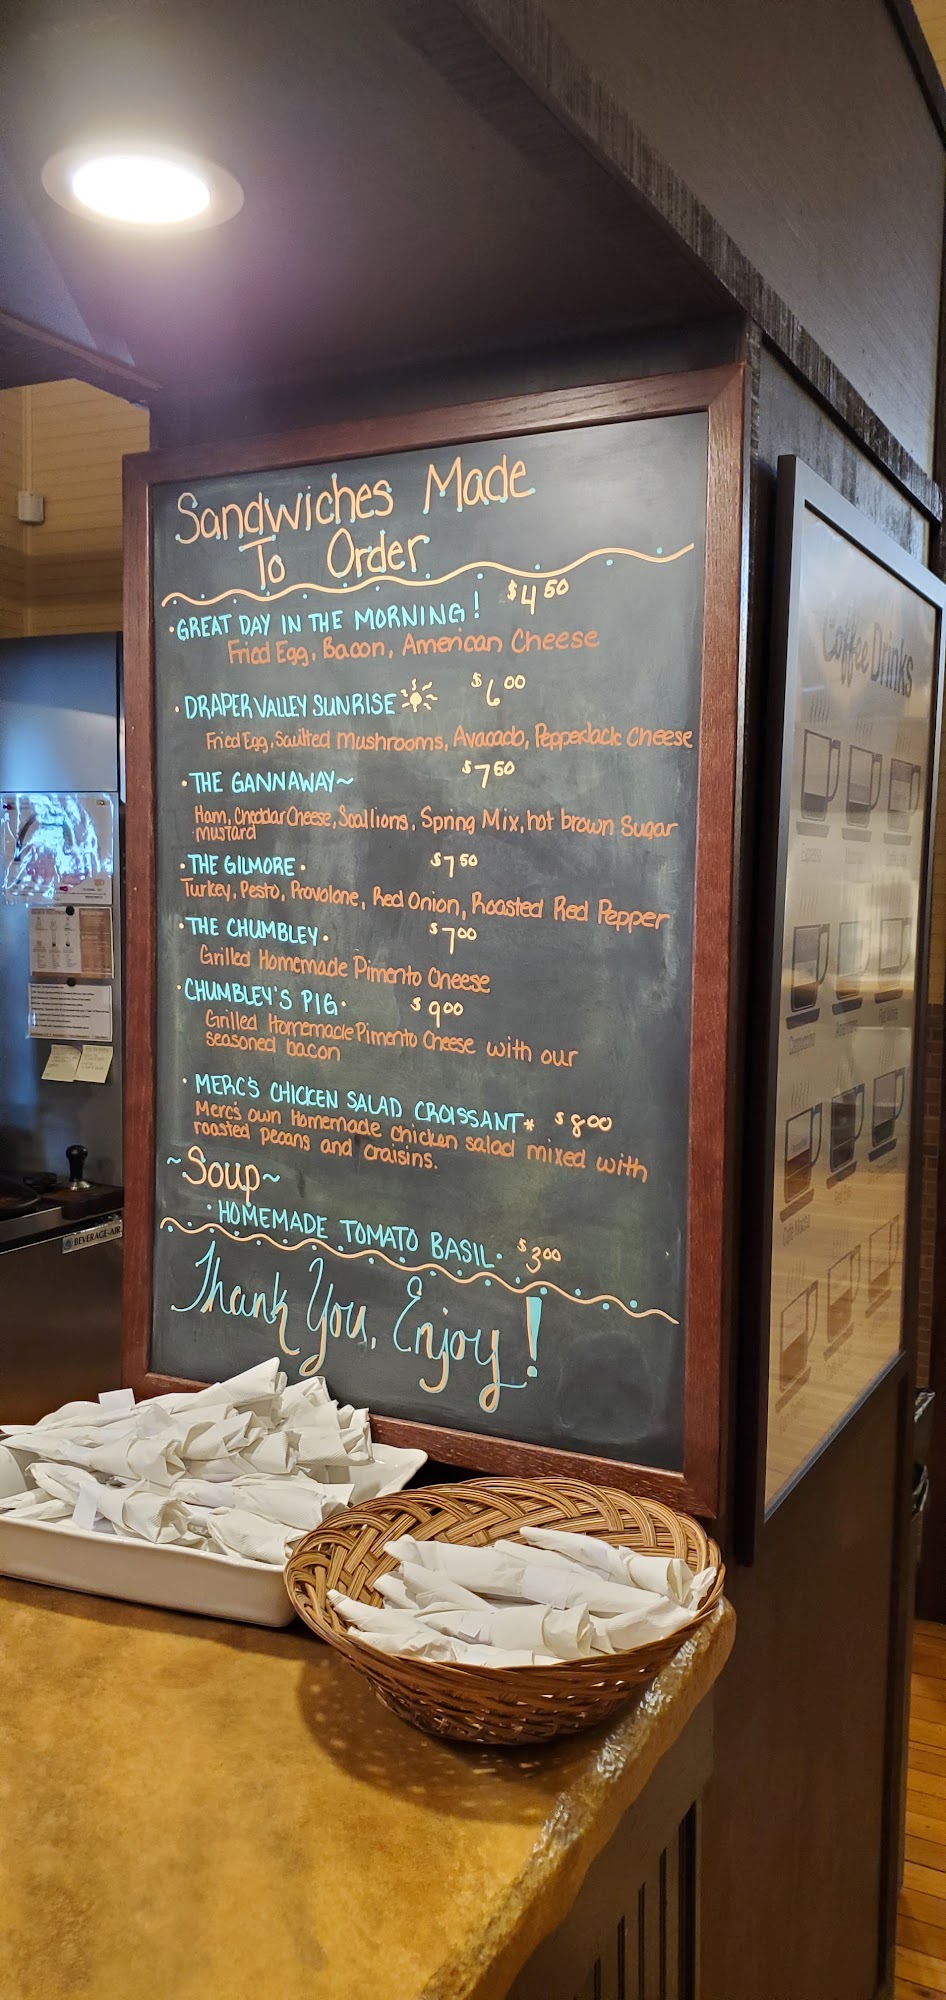 Sandwiches Made
To Order
• GREAT DAY IN THE MORNING! $4.50
Fried Egg, Bacon, American Cheese
• DRAPER VALLEY SUNRISE $6.00
Fried Egg, Saultted Mushrooms, Avacado, PepperJack Cheese
• THE GANNAWAY~ $7.50
Ham, Cheddar Cheese, Scallions, Spring Mix, hot brown Sugar
mustard
• THE GILMORE • $7.50
Turkey, Pesto, Provolone, Red Onion, Roasted Red Pepper
• THE CHUMBLEY • $7.00
Grilled Homemade Pimento Cheese
• CHUMBLEY'S PIG • $9.00
Grilled Homemade Pimento Cheese with our
seasoned bacon
• MERC'S CHICKEN SALAD CROISSANT* $8.00
Merc's own homemade chicken salad mixed with
roasted pecans and craisins.
~Soup~
• HOMEMADE TOMATO BASIL • $3.00
Thank You, Enjoy!
Coffee Drinks
BEVERAGE-AIR